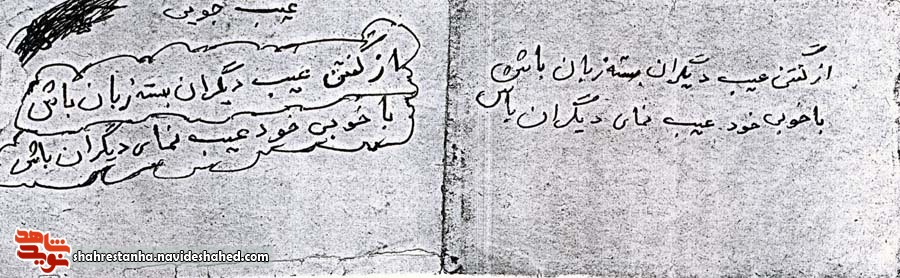 از گفتن عیب دیگران بسته زبان باش
با خوبی خود عیب نمای دیگران باش
عیب جویی
از گفتن عیب دیگران بسته زبان باش
با خوبی خود عیب نمای دیگران باش
نوید شاهد
shahrestanha.navideshahed.com